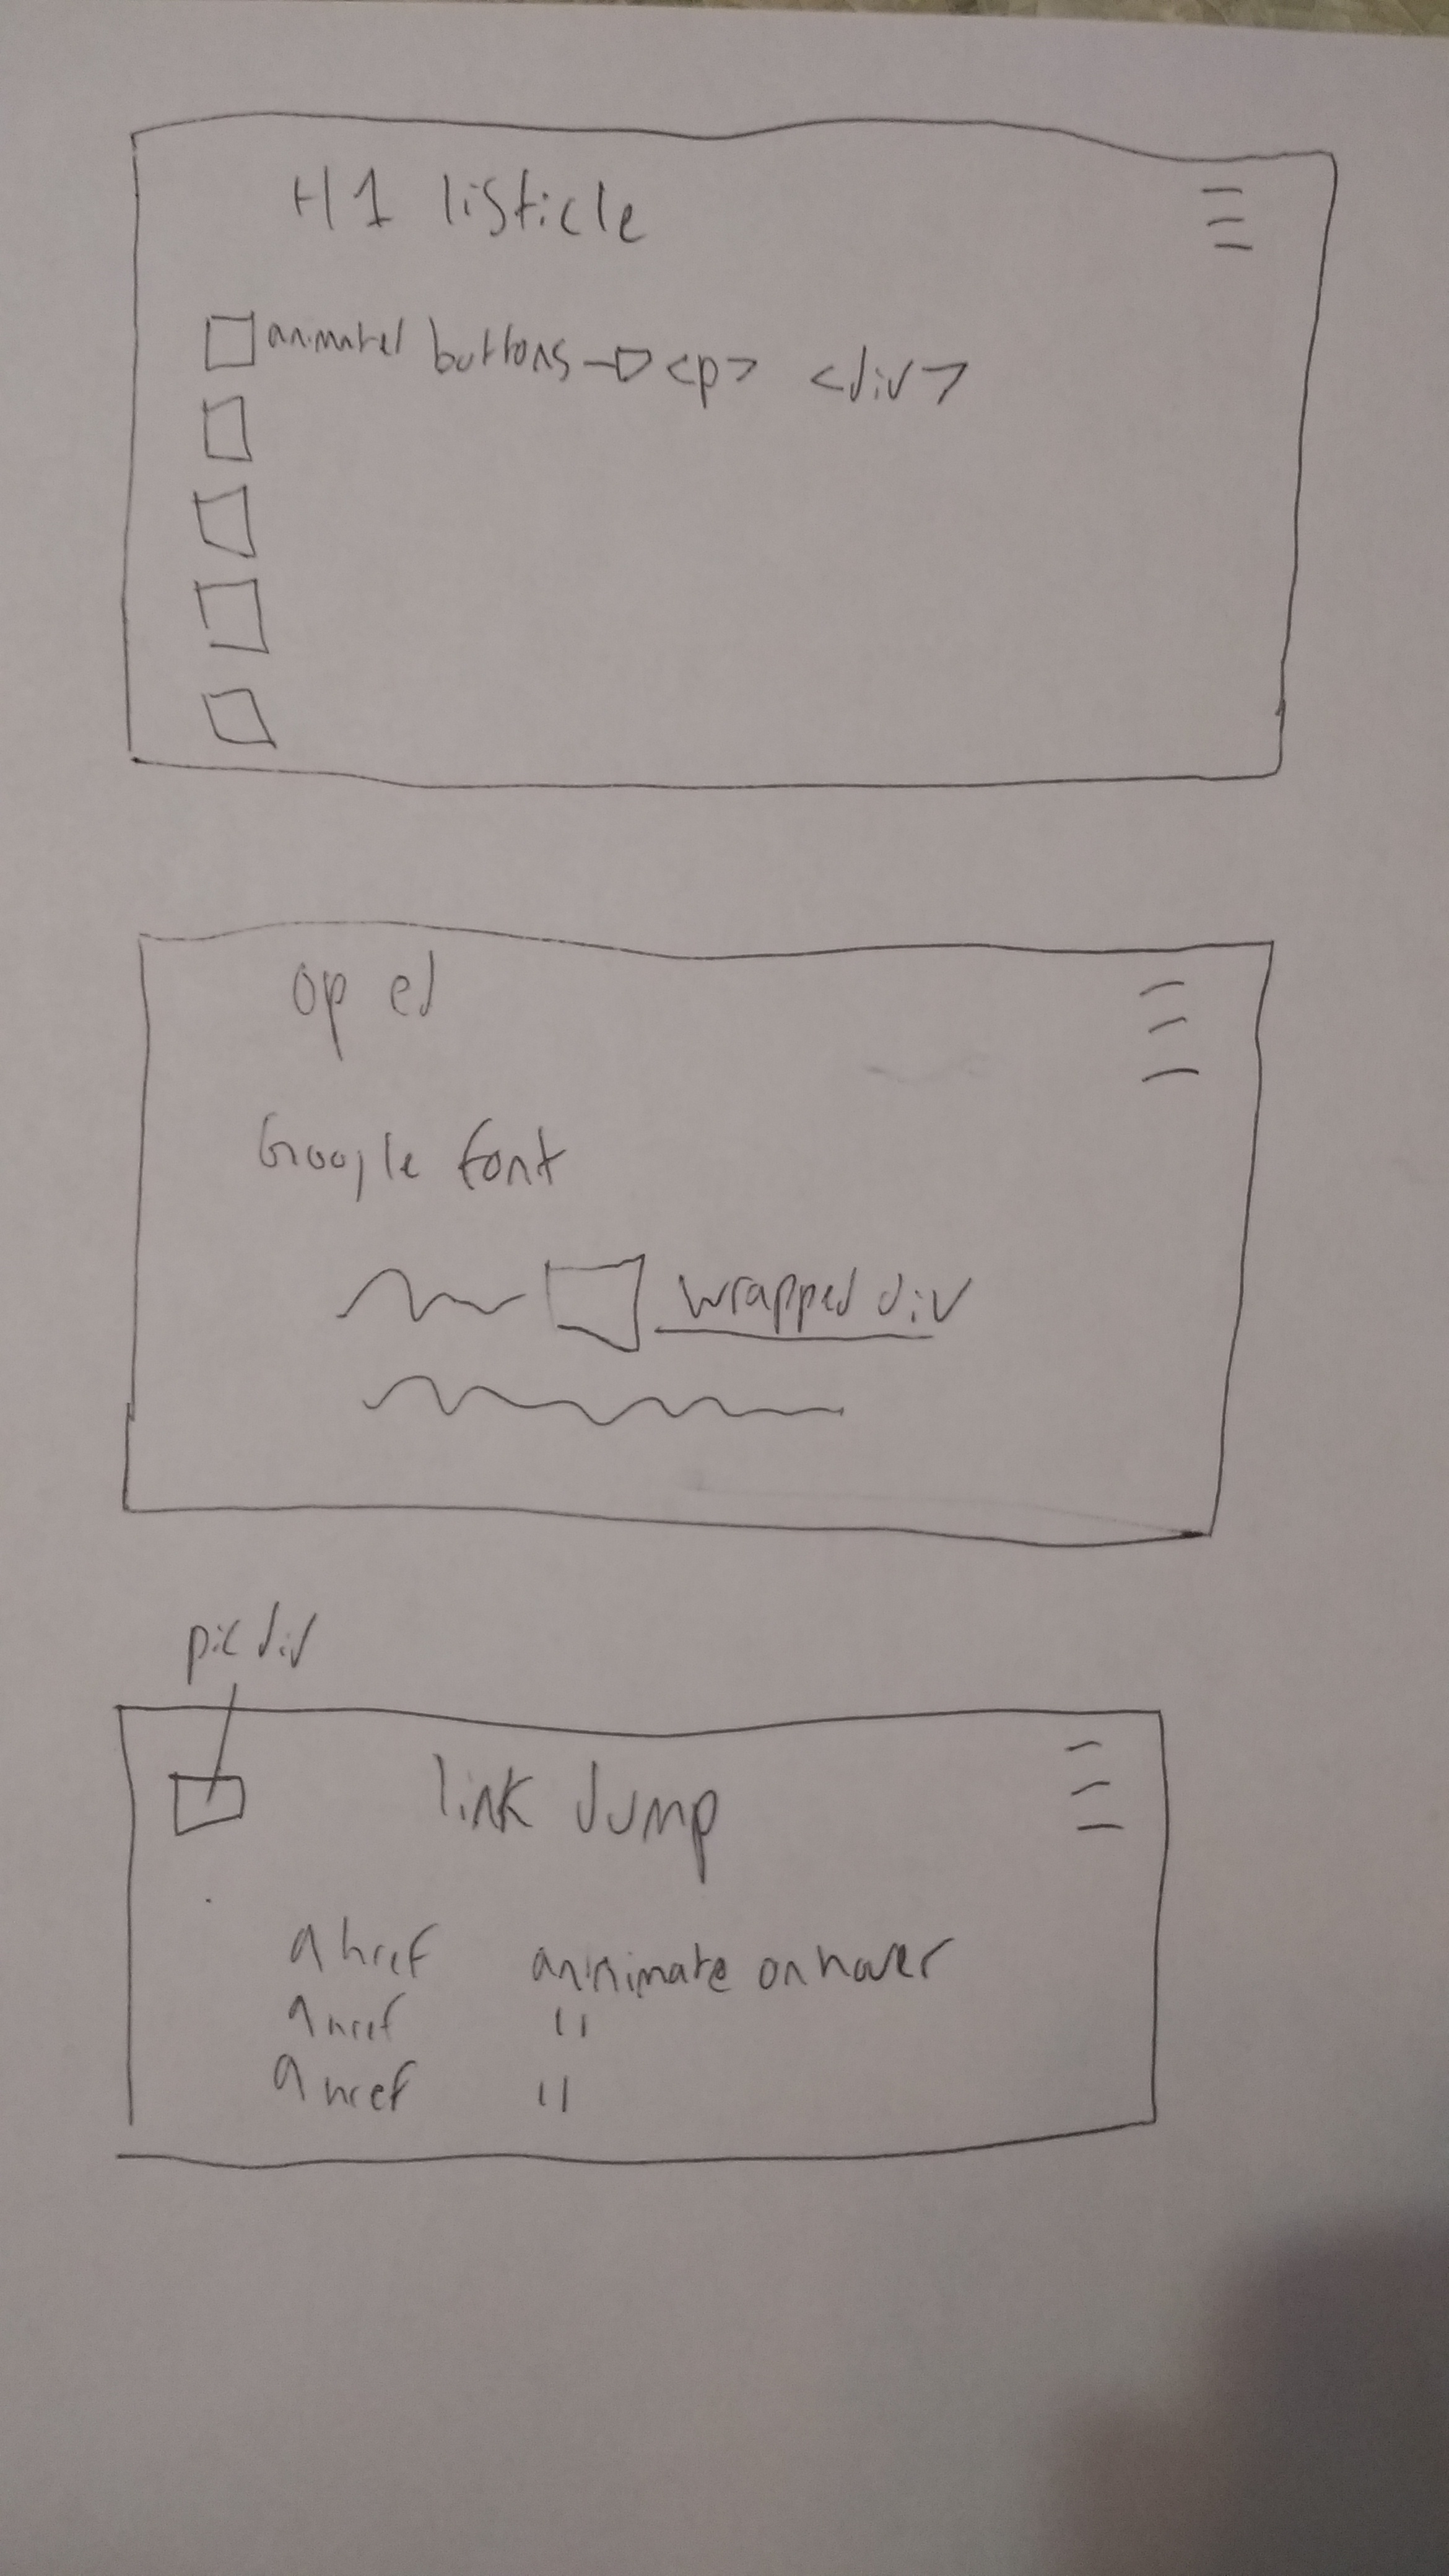 H1 listicle
animated buttons → <p> <div>
op ed
Google font
wrapped div
pic div
link Jump
a href aninimate on hover
a href "
a href "